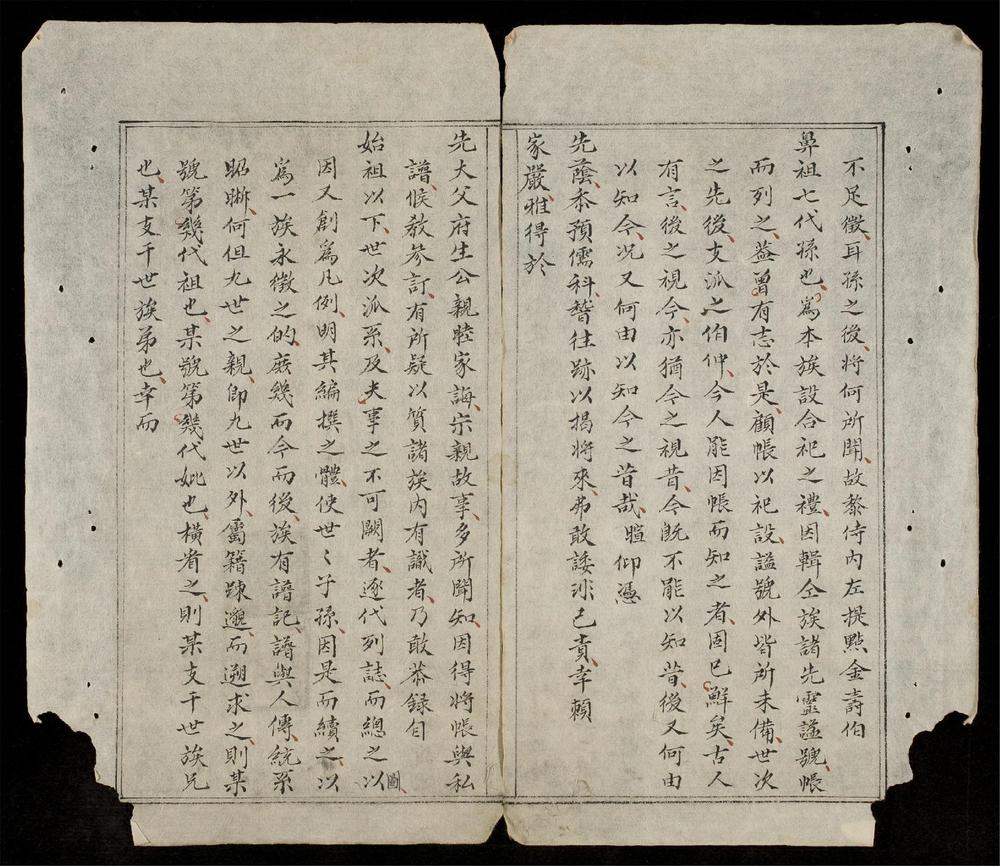 不足徵、耳孫之後、將何所聞、故黎侍内左提點金壽伯
鼻祖七代孫也、爲本族設合祀之禮、因輯仝族諸先靈謚號帳
而列之、益曾有志於是、顧帳以祀設、謚號外皆所未備、世次
之先後、支派之伯仲、今人能因帳而知之者、固已鮮矣、古人
有言、後之視今、亦猶今之視昔、今既不能以知昔、後又何由
以知今、况又何由以知今之昔哉、暄仰憑
先蔭、忝預儒科、稽往跡以揭將來、弗敢諉非己責、幸賴
家嚴、雅得於
先大父府生公親睦家誨、宗親故事、多所聞知、因得將帳與私
譜、候教參訂、有所疑以質諸族内有識者、乃敢恭録自
始祖以下、世次派系、及夫事之不可闕者、逐代列誌、而總之以圖
因又創爲凡例、明其編撰之體、使世〻子孫、因是而續之、以
爲一族永徵之的、庶幾而今而後、族有譜記、譜與人傳、統系
昭晰、何但九世之親、卽九世以外、寓籍踈邈、而遡求之、則某
號第幾代祖也、某號第幾代妣也、橫者之、則某支千世族兄
也、某支千世族弟也、幸而